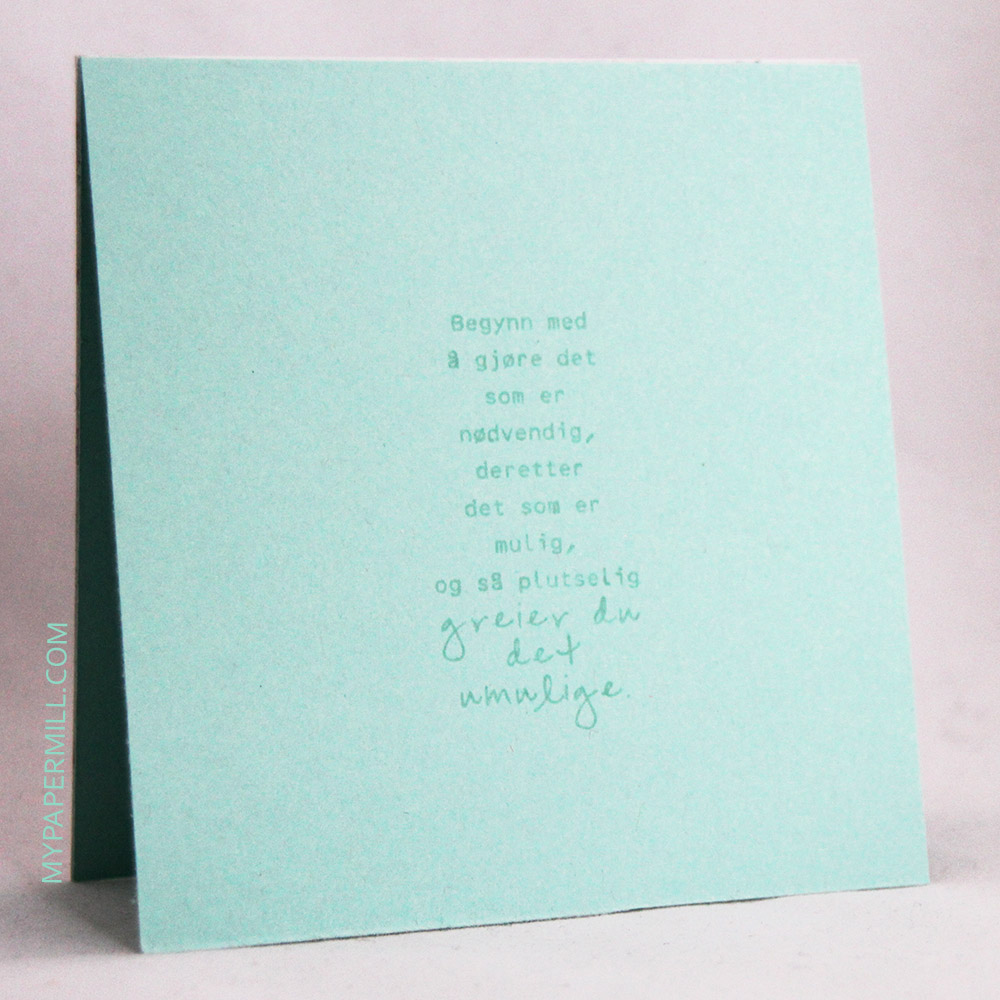 Begynn med
å gjøre det
som er
nødvendig,
deretter
det som er
mulig,
og så plutselig
greier du
det
umulige.
MYPAPERMILL.COM